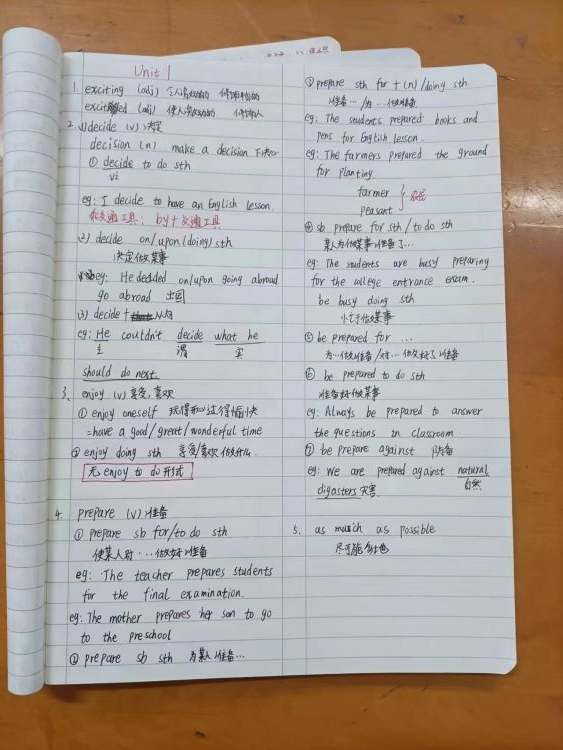 Unit 1
1. exciting (adj) 令人激动的 修饰物的
excited (adj) 使人激动的 修饰人
2. 1) decide (v) 决定
decision (n) make a decision 下决心
① decide to do sth
vi
eg: I decide to have an English lesson.
乘交通工具: by+交通工具
2) decide on/upon (doing) sth
决定做某事
eg: He decided on/upon going abroad
go abroad 出国
3) decide + 从句
eg: He couldn't decide what he
主 谓 宾
should do next.
3. enjoy (v) 享受,喜欢
① enjoy oneself 玩得和过得愉快
= have a good/great/wonderful time
② enjoy doing sth 享受/喜欢做什么.
无 enjoy to do 形式
4. prepare (v) 准备
① prepare sb for/to do sth
使某人对…做好准备
eg: The teacher prepares students
for the final examination.
eg: The mother prepares her son to go
to the preschool
② prepare sb sth 为某人准备…
③ prepare sth for + (n)/doing sth
准备…/为…做准备
eg: The students prepared books and
pens for English lesson.
eg: The farmers prepared the ground
for planting.
farmer
peasant 农民
④ sb prepare for sth/to do sth
某人为做某事准备了…
eg: The students are busy preparing
for the college entrance exam.
be busy doing sth
忙于做某事
⑤ be prepared for …
为…做准备/对…做好了准备
⑥ be prepared to do sth
准备好做某事
eg: Always be prepared to answer
the questions in classroom.
⑦ be prepare against 防备
eg: we are prepared against natural
自然
digasters 灾害
5. as much as possible
尽可能多地